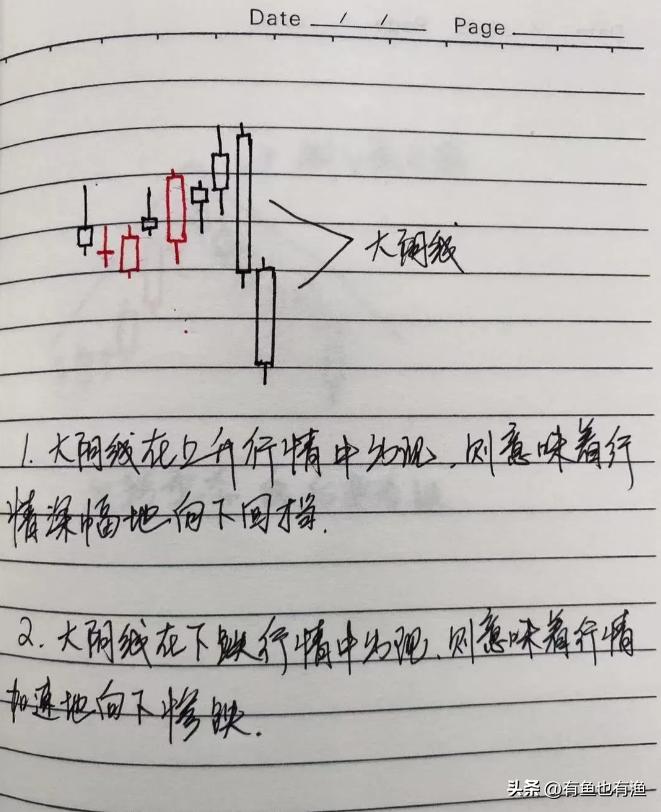 Date / / Page
大阴线
1. 大阴线在上升行情中出现，则意味着行
情深幅地向下回挡.
2. 大阴线在下跌行情中出现，则意味着行情
加速地向下惨跌.
头条 @有鱼也有渔